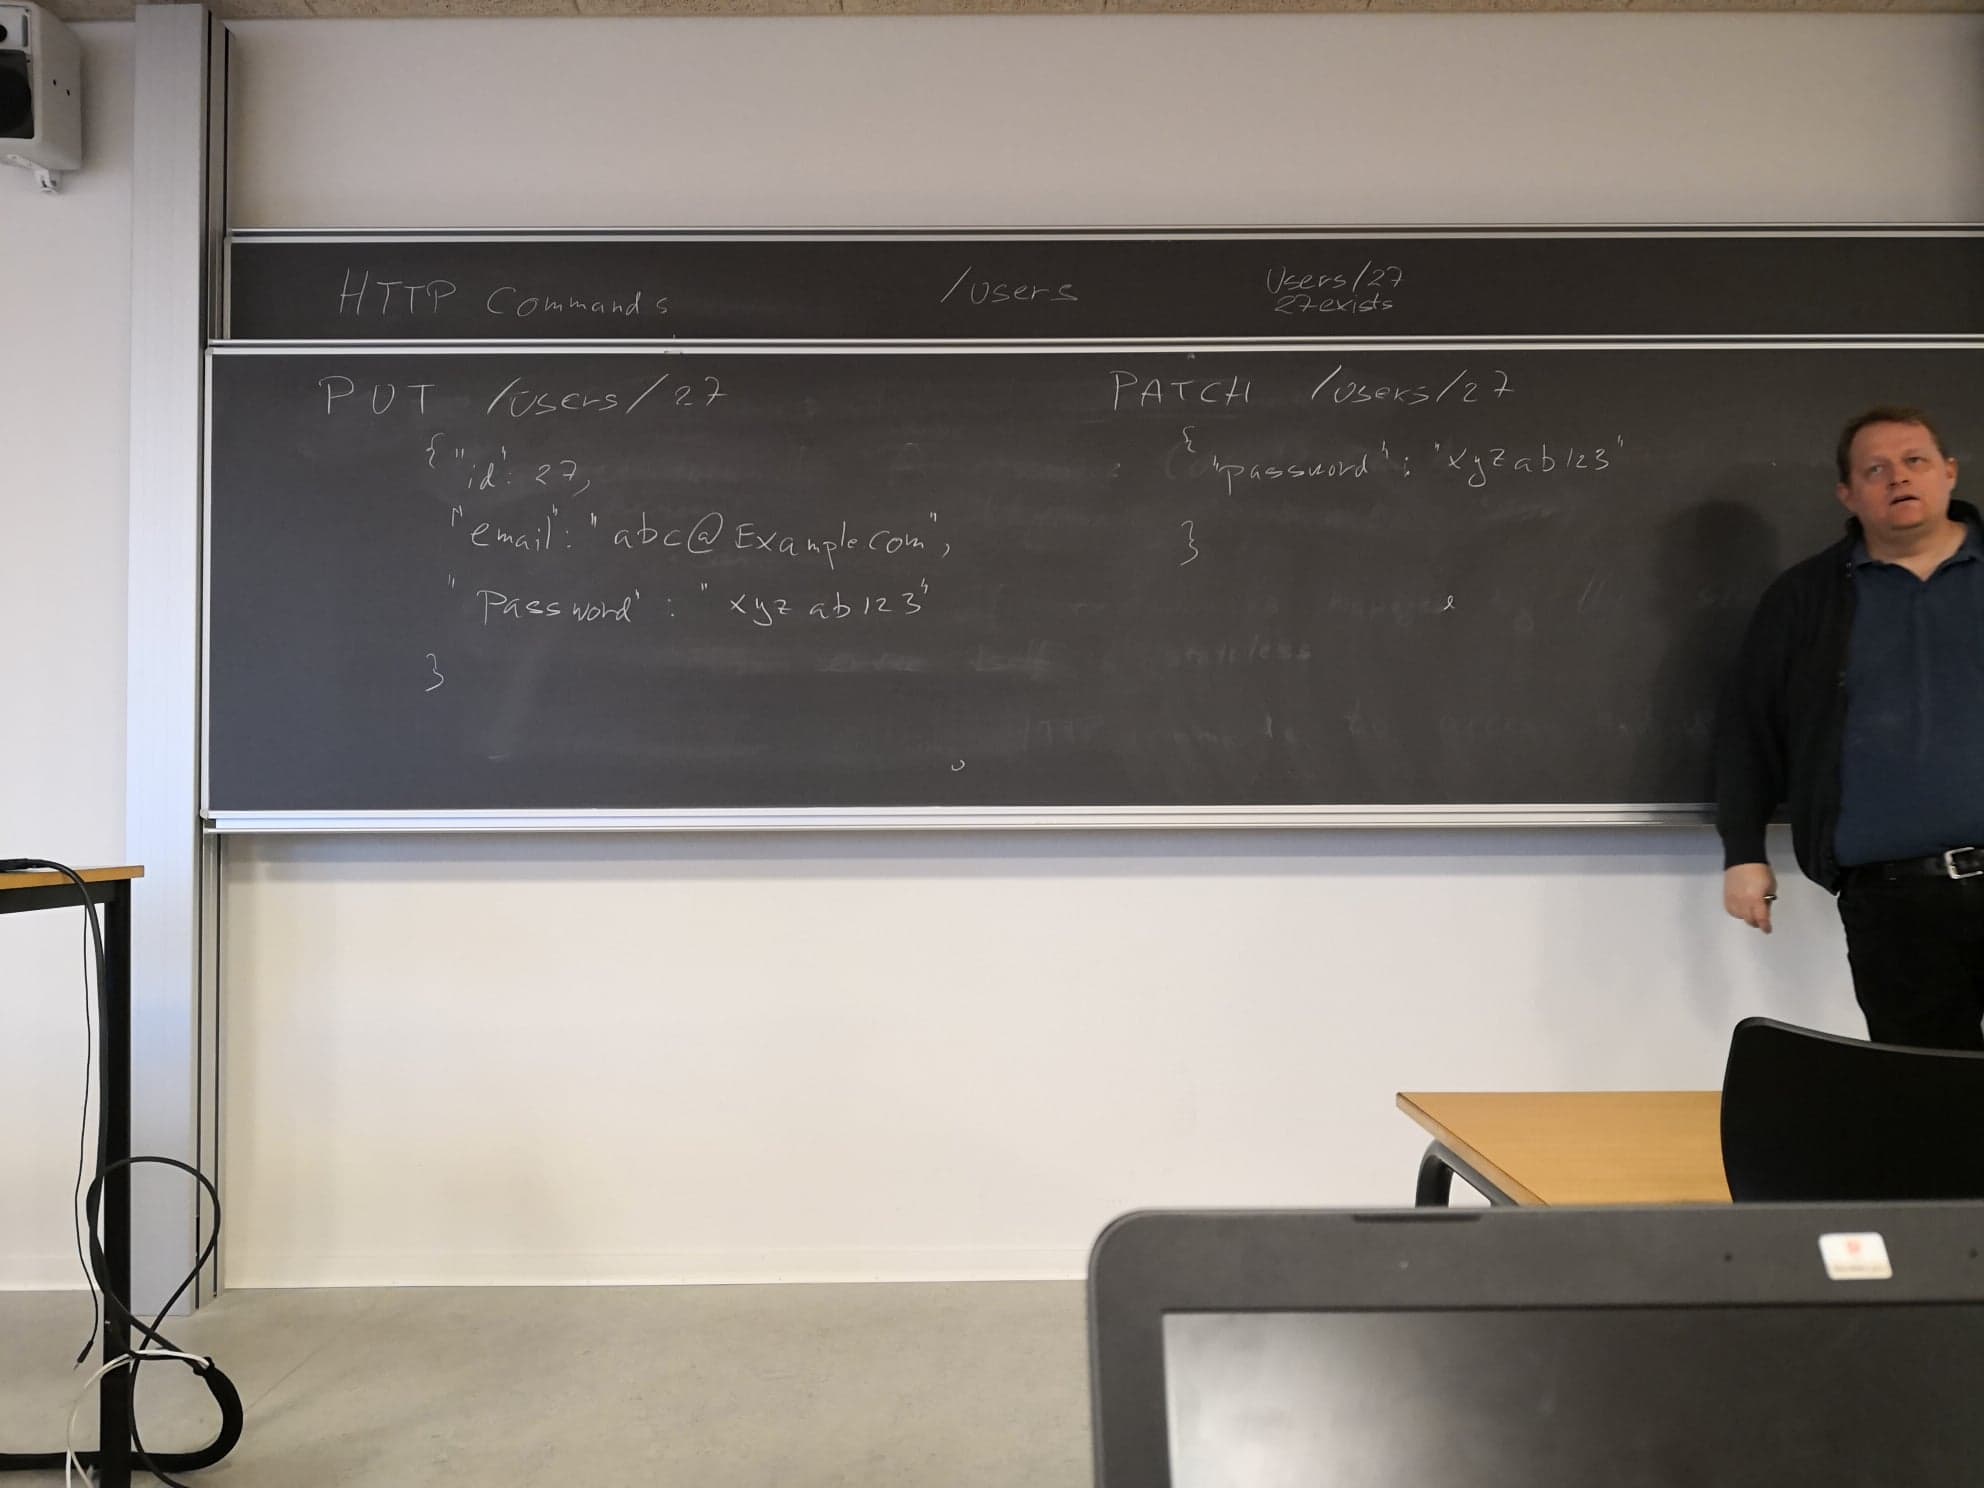 HTTP Commands /users Users/27
27 exists
PUT /users/27
{ "id": 27,
"email": "abc@Example.com",
"Password": "xyzab123"
}
PATCH /users/27
{
"password": "xyzab123"
}
stateless